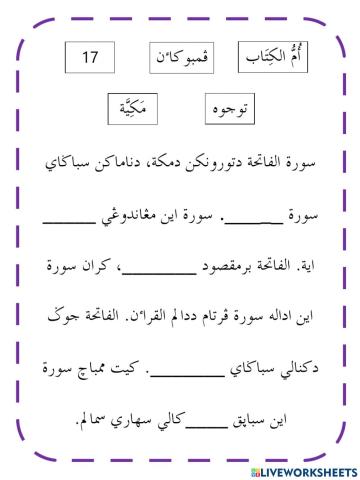 أُمُّ الكِتَاب ڤمبوكاٴن 17
توجوه مَكِيَّة
سورة الفاتحة دتورونكن دمكة، دناماكن سباڬاي
سورة ______. سورة اين مڠاندوڠي ______
اية. الفاتحة برمقصود ________، كران سورة
اين اداله سورة ڤرتام ددالم القراٴن. الفاتحة جوݢ
دكنالي سباڬاي ________. كيت ممباچ سورة
اين سباڽق _____كالي سهاري سمالم.
LIVEWORKSHEETS